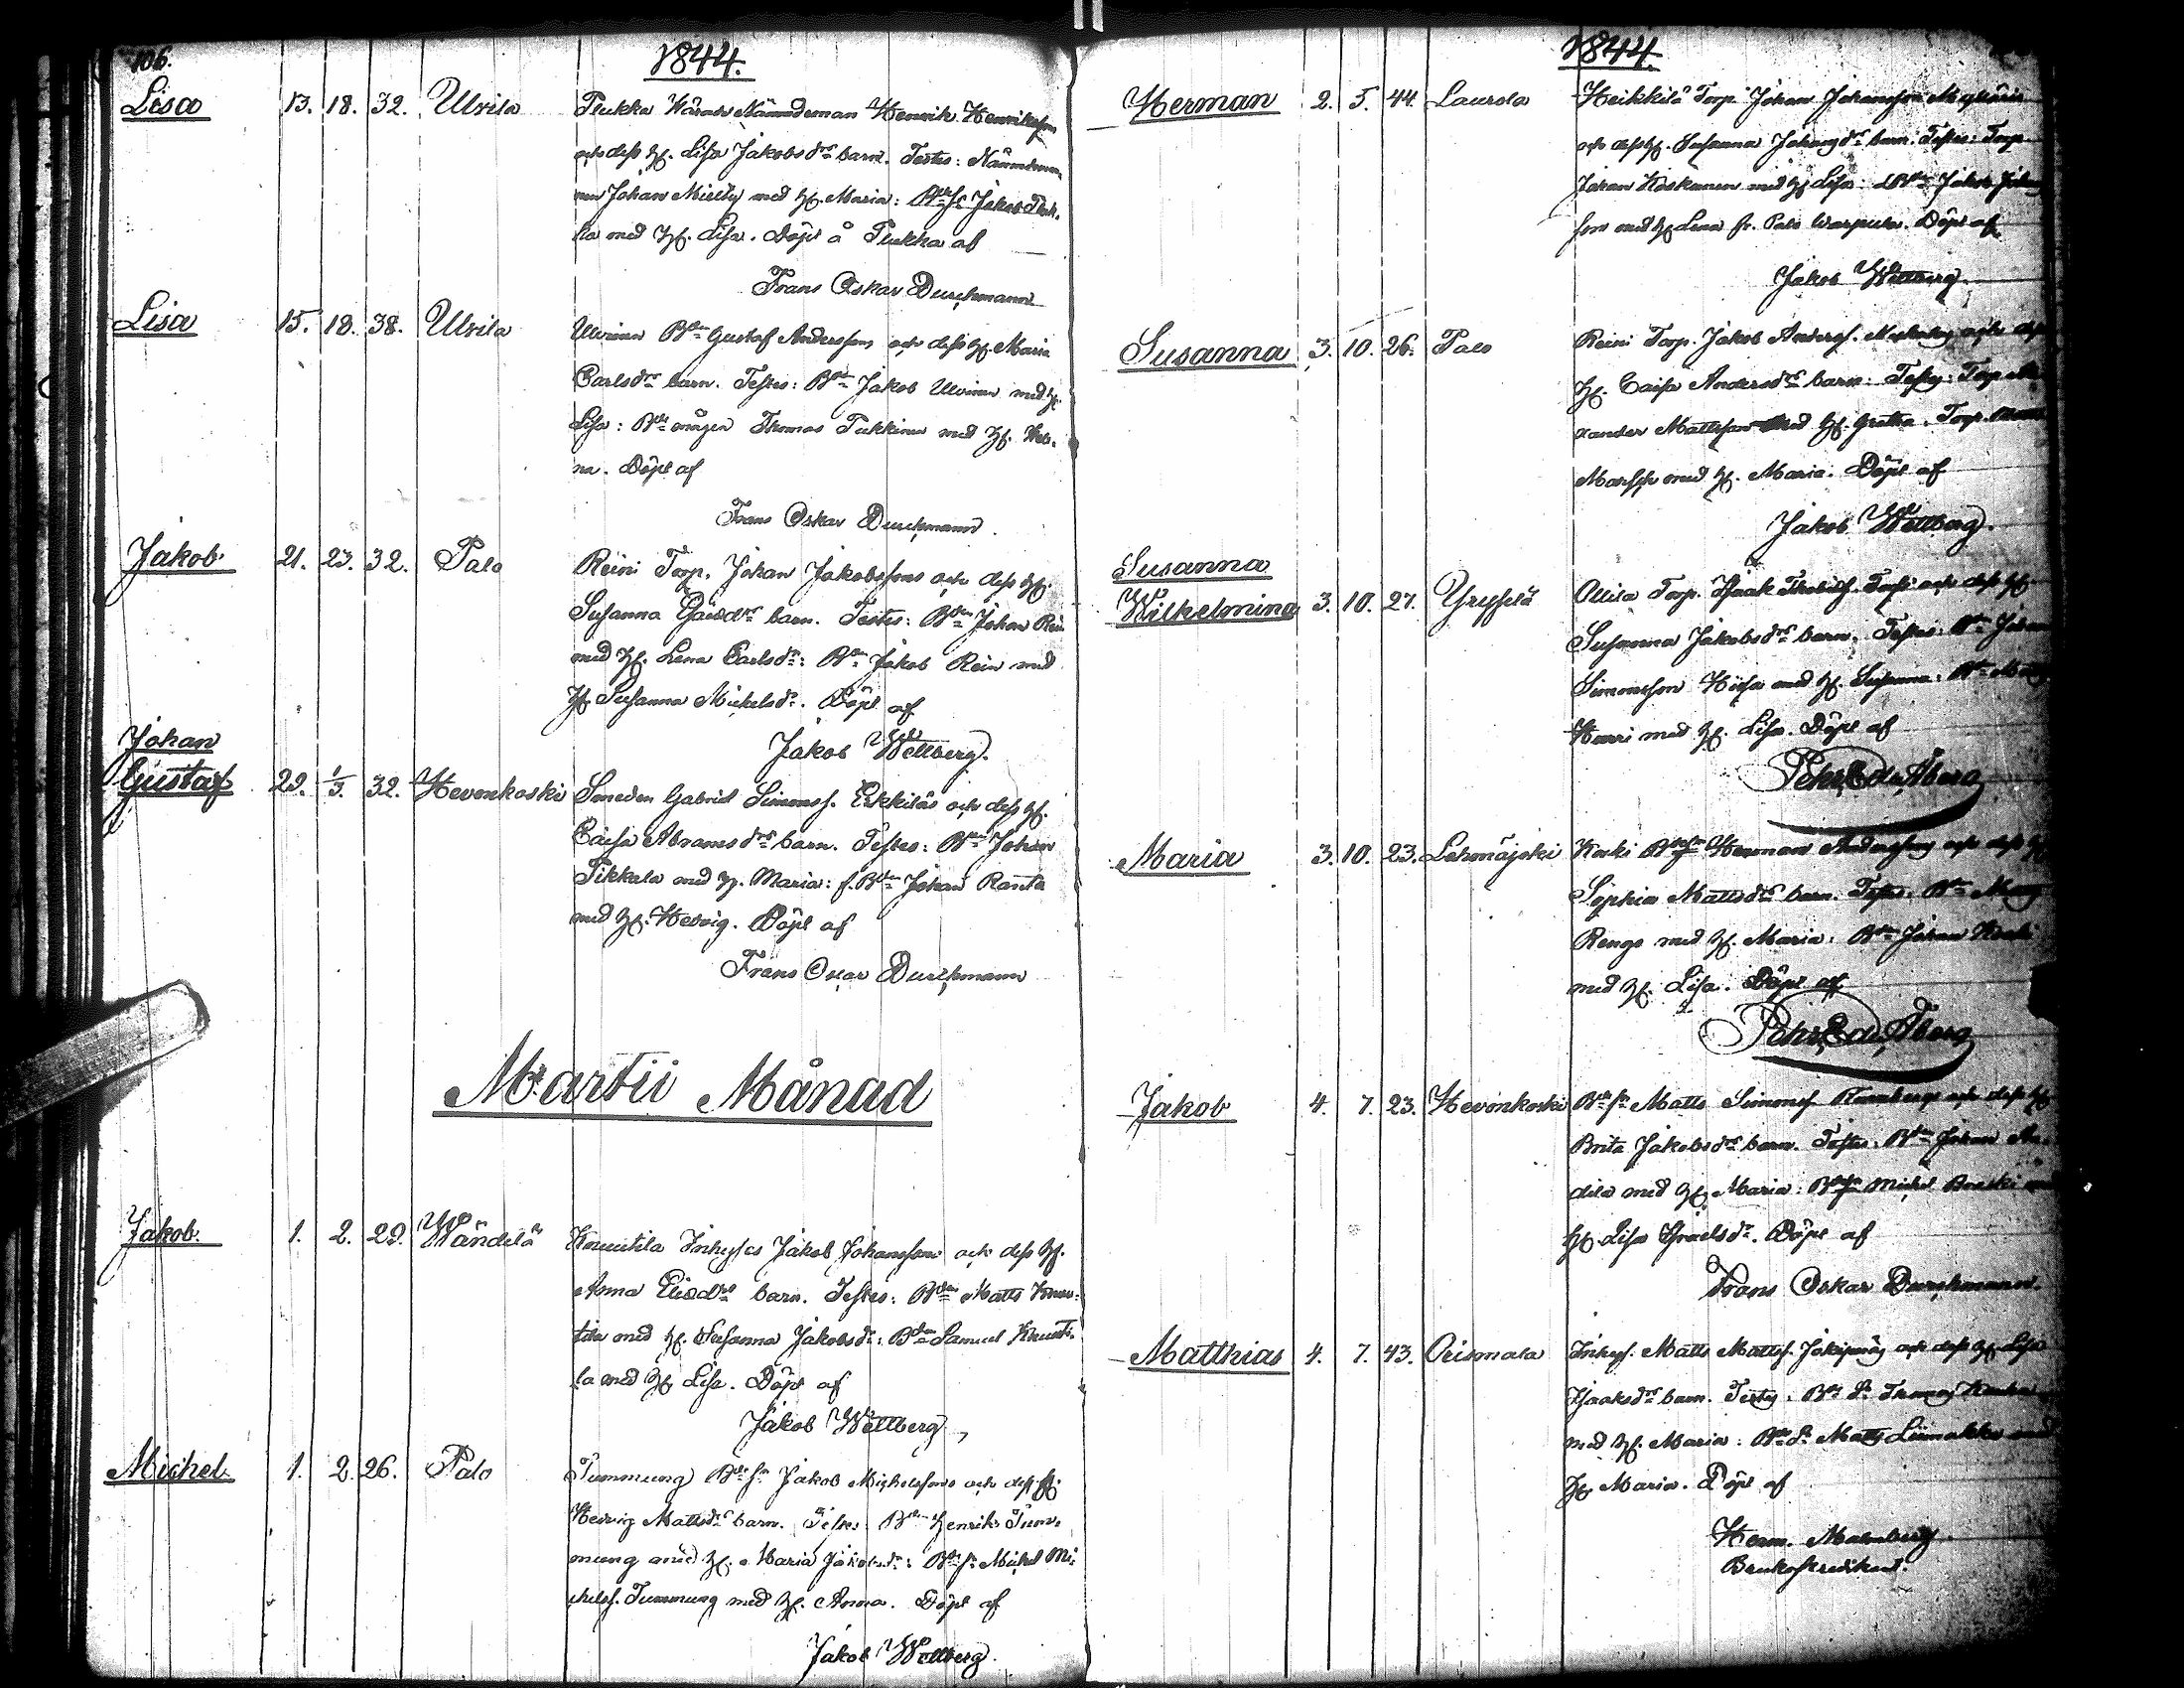 106.
1844.
Lisa 13. 18. 32. Ulvila Plukka Nämndeman Henrik Henriksson
och dess H. Lisa Jakobsdr barn. Testes: Nämndeman
Johan Mielty med H. Maria: Jakob Pluk-
ka med H. Lisa. Döpt å Plukka af
Frans Oskar Durchmann
Lisa 15. 18. 38. Ulvila Ulvinen Bdn Gustaf Anderssons och dess H. Maria
Carlsdr barn. Testes: Bdn Jakob Ulvinen med H.
Lisa: Bde mågen Thomas Pukkinen med H. Hele-
na. Döpt af
Frans Oskar Durchmann.
Jakob 21. 23. 32. Palo Reini Torp. Johan Jakobssons och dess H.
Susanna barn. Testes: Bdn Johan Rein
med H. Lena Carlsdr: Bdn Jakob Rein med
H. Susanna Michelsdr. Döpt af
Jakob Wellberg.
Johan
Gustaf 29. 1/3. 32. Hevonkoski Smeden Gabriel Simonss. Erkkiläs och dess H.
Caisa Abramsdr barn. Testes: Bdn Johan
Tikkala med H. Maria: f. Bdn Johan Ranta
med H. Hedvig. Döpt af
Frans Oscar Durchmann
Martii Månad
Jakob. 1. 2. 29. Wändelä Knuutila Inhyses Jakob Johanssons och dess H.
Anna Eliædr barn. Testes: Bdn Matts Knuu-
tila med H. Susanna Jakobsdr: Bdn Samuel Knuuti-
la med H. Lisa. Döpt af
Jakob Wellberg
Michel 1. 2. 26. Palo Tummung Bdesn Jakob Michelssons och dess H.
Hedvig Mattsdr barn. Testes: Bdn Henrik Tum-
mung med H. Maria Jakobsdr: Bdesn Michel Mi-
chelss. Tummung med H. Anna. Döpt af
Jakob Wellberg.
1844.
Herman 2. 5. 44. Laurola Heikkilä Torp. Johan Johansson
och dess H. Susanna Johansdr barn. Testes: Torp.
Johan Koskanen med H. Lisa: Jakob
son med H. Lena fr. Palo Warpula. Döpt af
Jakob Wellberg.
Susanna 3. 10. 26. Palo Reini Torp. Jakob Anderss. och dess
H. Caisa Andersdr barn: Testes: Torp.
xander Mattsson med H. Gretha. Torp.
med H. Maria. Döpt af
Jakob Wellberg.
Susanna
Wilhelmina 3. 10. 27. Yrjylä Ollila Torp. Isaak och dess H.
Susanna Jakobsdr barn. Testes: Bdn Johan
Simonsson med H. Susanna: Bdn
Harri med H. Lisa. Döpt af
Pehr Ed. Åberg
Maria 3. 10. 23. Lehmäjoki Koski Herman Anderssons och dess H.
Sophia Mattsdr barn. Testes: Bdn
Rengo med H. Maria: Bdn Johan Koski
med H. Lisa. Döpt af
Pehr Ed. Åberg
Jakob 4. 7. 23. Hevonkoski Bdesn Matts Simonss. och dess H.
Brita Jakobsdr barn. Testes: Bdn Johan
dila med H. Maria: Bdesn Michel
H. Lisa Israelsdr. Döpt af
Frans Oskar Durchmann.
Matthias 4. 7. 43. Orismala Inhys. Matts Mattss. och dess H. Lisa
Isaaksdr barn. Testes: Thomas
med H. Maria: Matts Liimakka med
H. Maria. Döpt af
Herm. Malmberg.
Bruks predikant.